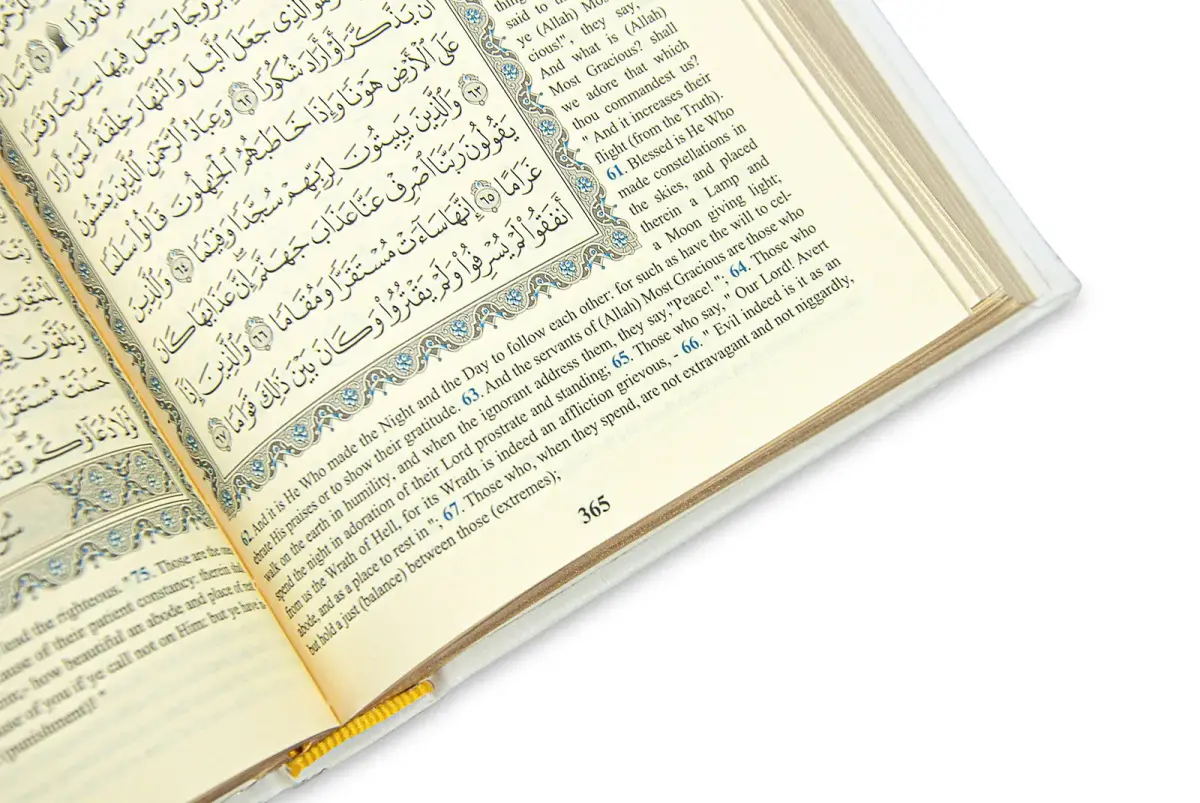 بُرُوجًا وَجَعَلَ فِيهَا سِرَاجًا وَقَمَرًا
وَهُوَ ٱلَّذِي جَعَلَ ٱلَّيْلَ وَٱلنَّهَارَ خِلْفَةً لِّمَنْ أَرَادَ
أَن يَذَّكَّرَ أَوْ أَرَادَ شُكُورًا ٦٢ وَعِبَادُ ٱلرَّحْمَٰنِ ٱلَّذِينَ يَمْشُونَ
عَلَى ٱلْأَرْضِ هَوْنًا وَإِذَا خَاطَبَهُمُ ٱلْجَٰهِلُونَ قَالُوا۟ سَلَٰمًا
٦٣ وَٱلَّذِينَ يَبِيتُونَ لِرَبِّهِمْ سُجَّدًا وَقِيَٰمًا ٦٤ وَٱلَّذِينَ
يَقُولُونَ رَبَّنَا ٱصْرِفْ عَنَّا عَذَابَ جَهَنَّمَ إِنَّ عَذَابَهَا كَانَ
غَرَامًا ٦٥ إِنَّهَا سَآءَتْ مُسْتَقَرًّا وَمُقَامًا ٦٦ وَٱلَّذِينَ إِذَآ
أَنفَقُوا۟ لَمْ يُسْرِفُوا۟ وَلَمْ يَقْتُرُوا۟ وَكَانَ بَيْنَ ذَٰلِكَ قَوَامًا ٦٧
said to
ye (Allah)
cious!", they say,
And what is (Allah)
Most Gracious? shall
we adore that which
thou commandest us?
" And it increases their
flight (from the Truth).
61. Blessed is He Who
made constellations in
the skies, and placed
therein a Lamp and
a Moon giving light;
62. And it is He Who made the Night and the Day to follow each other: for such as have the will to cel-
ebrate His praises or to show their gratitude. 63. And the servants of (Allah) Most Gracious are those who
walk on the earth in humility, and when the ignorant address them, they say,"Peace! "; 64. Those who
spend the night in adoration of their Lord prostrate and standing; 65. Those who say, " Our Lord! Avert
from us the Wrath of Hell, for its Wrath is indeed an affliction grievous, - 66. " Evil indeed is it as an
abode, and as a place to rest in "; 67. Those who, when they spend, are not extravagant and not niggardly,
but hold a just (balance) between those (extremes);
365
lead the righteous. " 75. Those are the
of their patient constancy: therein
how beautiful an abode and place of
of you if ye call not on Him: but ye have
(punishment)! "